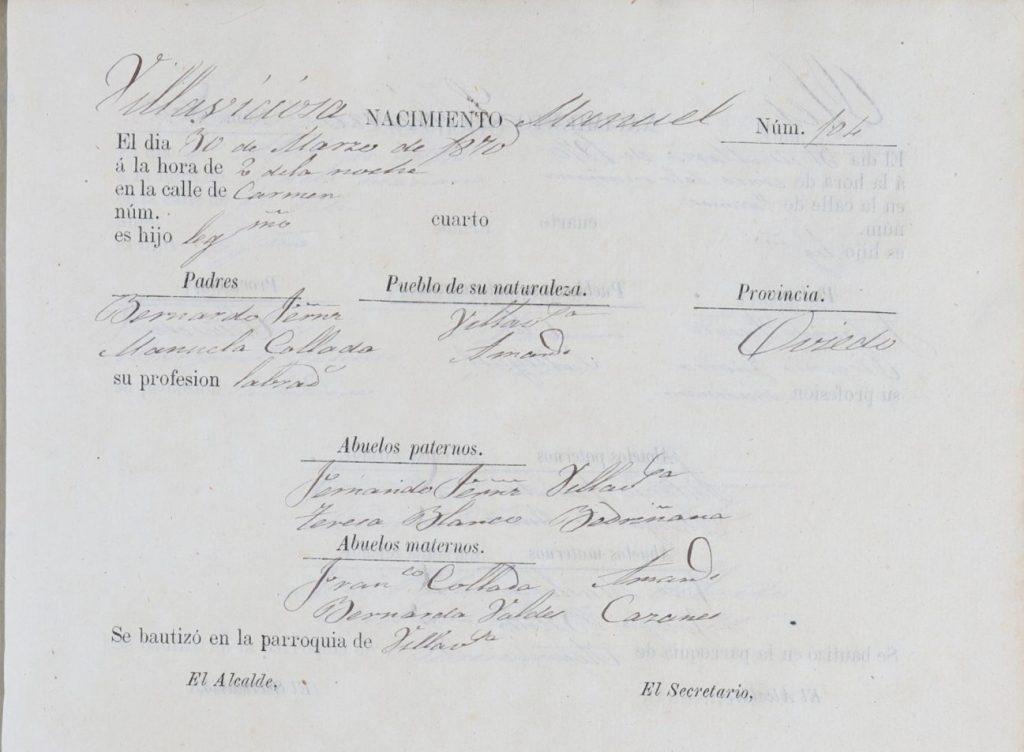 Villaviciosa NACIMIENTO Manuel Núm. 184
El dia 30 de Marzo de 1870
á la hora de 2 de la noche
en la calle de Carmen
núm. cuarto
es hijo leg.mo
Padres Pueblo de su naturaleza. Provincia.
Bernardo Fernz Villav.sa Oviedo
Manuela Collada Amandi
su profesion labrad.r
Abuelos paternos.
Fernando Fernz Villav.sa
Teresa Blanco Bedriñana
Abuelos maternos.
Fran.co Collada Amandi
Bernarda Valdes Cazanes
Se bautizó en la parroquia de Villav.sa
El Alcalde, El Secretario,